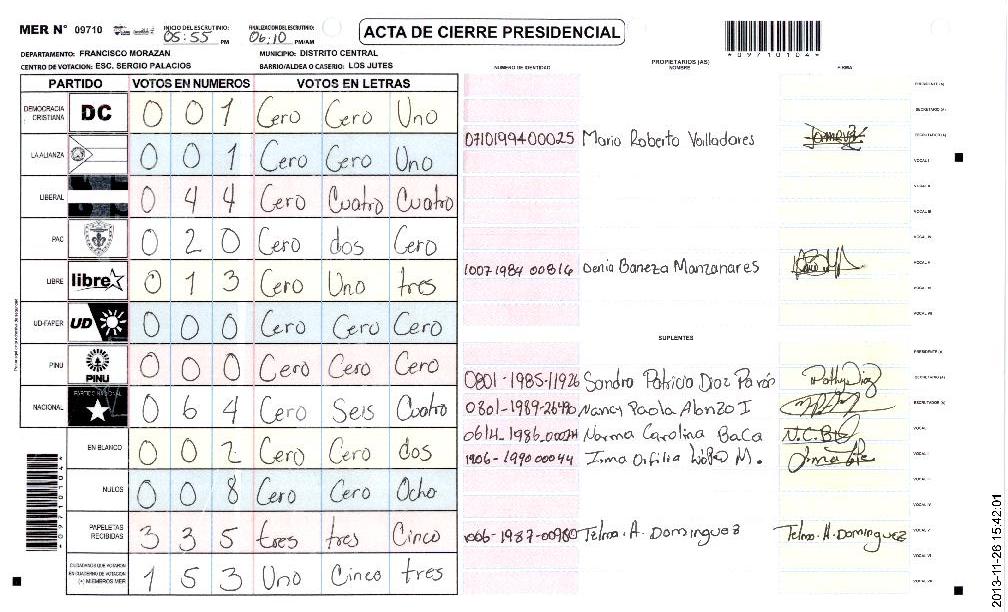 MER N° 09710 INICIO DEL ESCRUTINIO: 05:55 PM FINALIZACION DEL ESCRUTINIO: 06:10 PM/AM ACTA DE CIERRE PRESIDENCIAL
*09710104*
DEPARTAMENTO: FRANCISCO MORAZAN MUNICIPIO: DISTRITO CENTRAL
CENTRO DE VOTACION: ESC. SERGIO PALACIOS BARRIO/ALDEA O CASERIO: LOS JUTES
NUMERO DE IDENTIDAD PROPIETARIOS (AS) NOMBRE FIRMA
PARTIDO VOTOS EN NUMEROS VOTOS EN LETRAS
DEMOCRACIA CRISTIANA DC 0 0 1 Cero Cero Uno
LA ALIANZA 0 0 1 Cero Cero Uno
LIBERAL 0 4 4 Cero Cuatro Cuatro
PAC 0 2 0 Cero dos Cero
LIBRE libre 0 1 3 Cero Uno tres
UD-FAPER UD 0 0 0 Cero Cero Cero
PINU PINU 0 0 0 Cero Cero Cero
NACIONAL PARTIDO NACIONAL 0 6 4 Cero Seis Cuatro
EN BLANCO 0 0 2 Cero Cero dos
NULOS 0 0 8 Cero Cero Ocho
PAPELETAS RECIBIDAS 3 3 5 tres tres Cinco
CIUDADANOS QUE VOTARON EN CUADERNO DE VOTACION (+) MIEMBROS MER 1 5 3 Uno Cinco tres
*09710104*
PRESIDENTE (A)
SECRETARIO (A)
0710199400025 Mario Roberto Vailladares ESCRUTADOR (A)
VOCAL I
VOCAL II
VOCAL III
VOCAL IV
1007 1984 00816 Denia Baneza Manzanares VOCAL V
VOCAL VI
VOCAL VII
SUPLENTES
PRESIDENTE (A)
0801-1985-11926 Sandra Patricia Diaz Pathy Diaz SECRETARIO (A)
Nancy Paola Alonzo I ESCRUTADOR (A)
Norma Carolina Baca N.C.B VOCAL I
1906-1990 00044 Irma Orfilia López M. VOCAL II
VOCAL III
VOCAL IV
1006-1987-00980 Telma. A. Dominguez Telma. A. Dominguez VOCAL V
VOCAL VI
VOCAL VII
2013-11-26 15:42:01